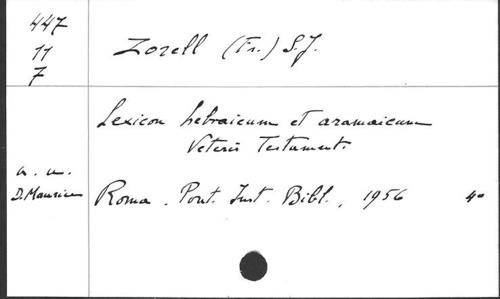 447
11
7
Zorell (Fr.) S.J.
Lexicon hebraicum et aramaicum
Veteris Testament.
a. u.
D. Maurice
Roma. Pont. Inst. Bibl., 1956 4°